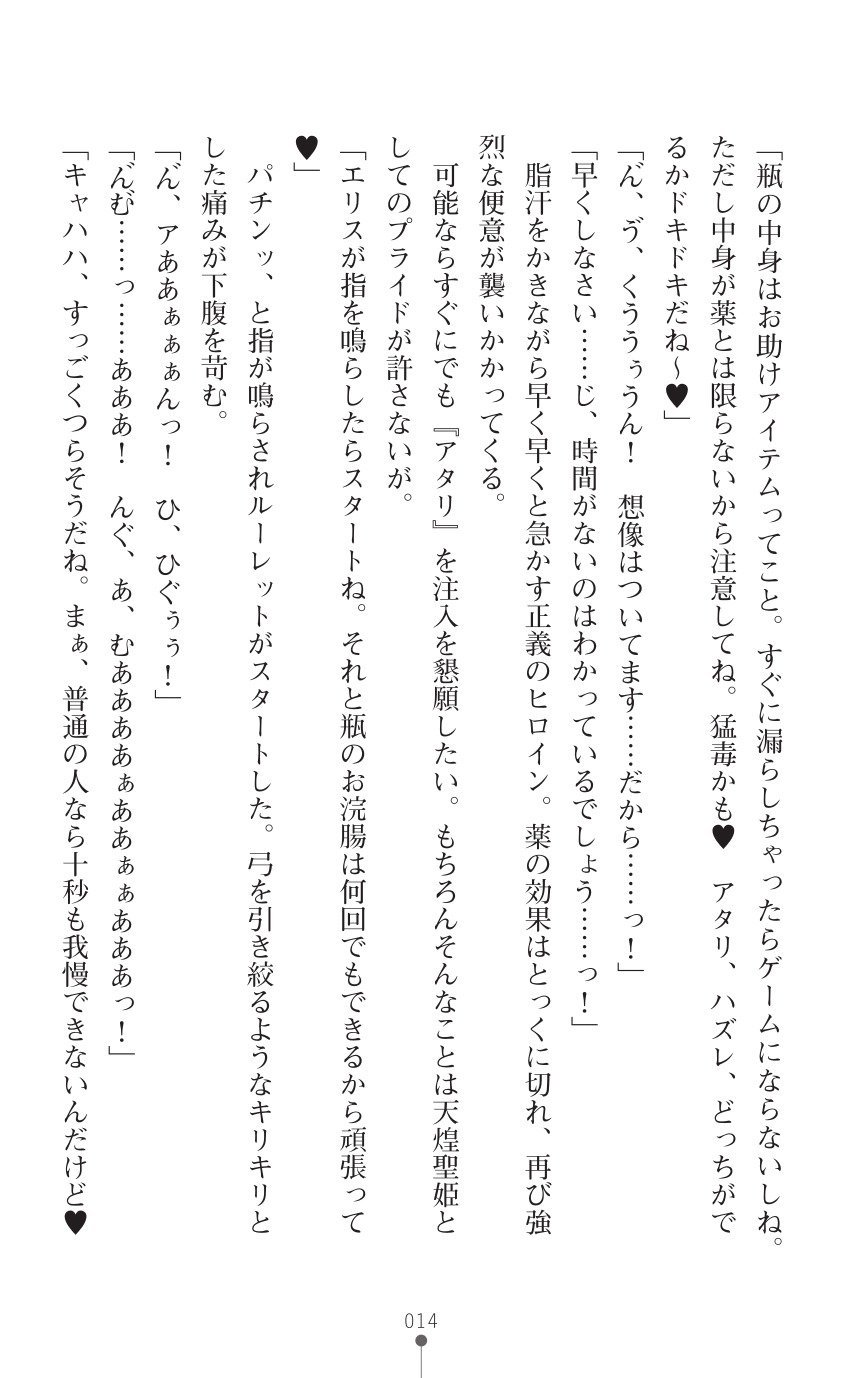 「瓶の中身はお助けアイテムってこと。すぐに漏らしちゃったらゲームにならないしね。
ただし中身が薬とは限らないから注意してね。猛毒かも♥　アタリ、ハズレ、どっちがで
るかドキドキだね～♥」
「ん、ゔ、くううぅうん！　想像はついてます……だから……っ！」
「早くしなさい……じ、時間がないのはわかっているでしょう……っ！」
　脂汗をかきながら早く早くと急かす正義のヒロイン。薬の効果はとっくに切れ、再び強
烈な便意が襲いかかってくる。
　可能ならすぐにでも『アタリ』を注入を懇願したい。もちろんそんなことは天煌聖姫と
してのプライドが許さないが。
「エリスが指を鳴らしたらスタートね。それと瓶のお浣腸は何回でもできるから頑張って
♥」
　パチンッ、と指が鳴らされルーレットがスタートした。弓を引き絞るようなキリキリと
した痛みが下腹を苛む。
「ん゙、アああぁぁぁんっ！　ひ、ひぐぅぅ！」
「ん゙む……っ……あああ！　んぐ、あ、むああああぁああぁぁあああっ！」
「キャハハ、すっごくつらそうだね。まぁ、普通の人なら十秒も我慢できないんだけど♥
014